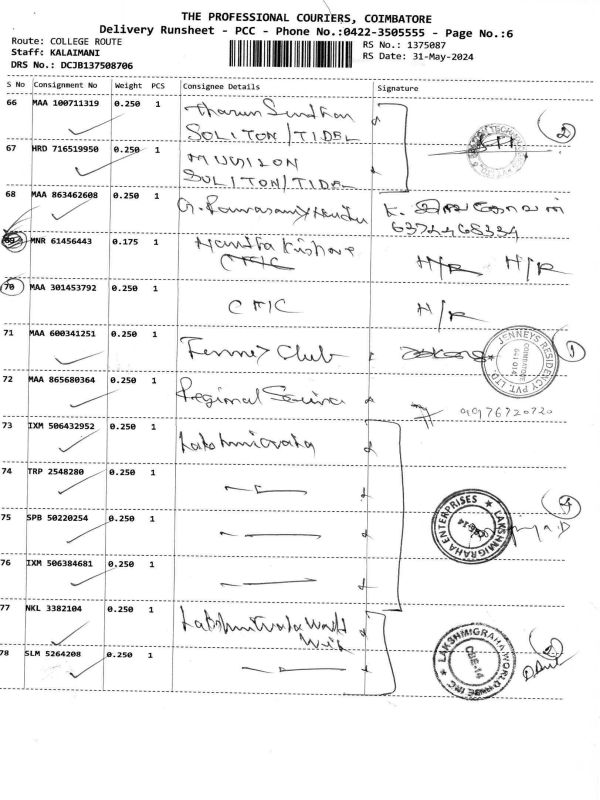 THE PROFESSIONAL COURIERS, COIMBATORE
Delivery Runsheet - PCC - Phone No.:0422-3505555 - Page No.:6
Route: COLLEGE ROUTE
RS No.: 1375087
Staff: KALAIMANI
RS Date: 31-May-2024
DRS No.: DCJB137508706
S No Consignment No Weight PCS Consignee Details Signature
66 MAA 100711319 0.250 1 Tharun
SOLITON/TIDEL
2
67 HRD 716519950 0.250 1 MUGILON
SOLITON/TIDEL
68 MAA 863462608 0.250 1
69 MNR 61456443 0.175 1 H/R H/R
70 MAA 301453792 0.250 1 H/R
71 MAA 600341251 0.250 1 Jenney Club
JENNEYS RESIDENCY PVT. LTD.
COIMBATORE
641 014
1
72 MAA 865680364 0.250 1 Regional Science
73 IXM 506432952 0.250 1 Lakshmigraha
74 TRP 2548280 0.250 1
75 SPB 50220254 0.250 1
LAKSHMIGRAHA ENTERPRISES
CBE-14
4
76 IXM 506384681 0.250 1
77 NKL 3382104 0.250 1 Lakshmigraha World
Wide
LAKSHMIGRAHA WORLD WIDE INC
CBE-14
2
78 SLM 5264208 0.250 1